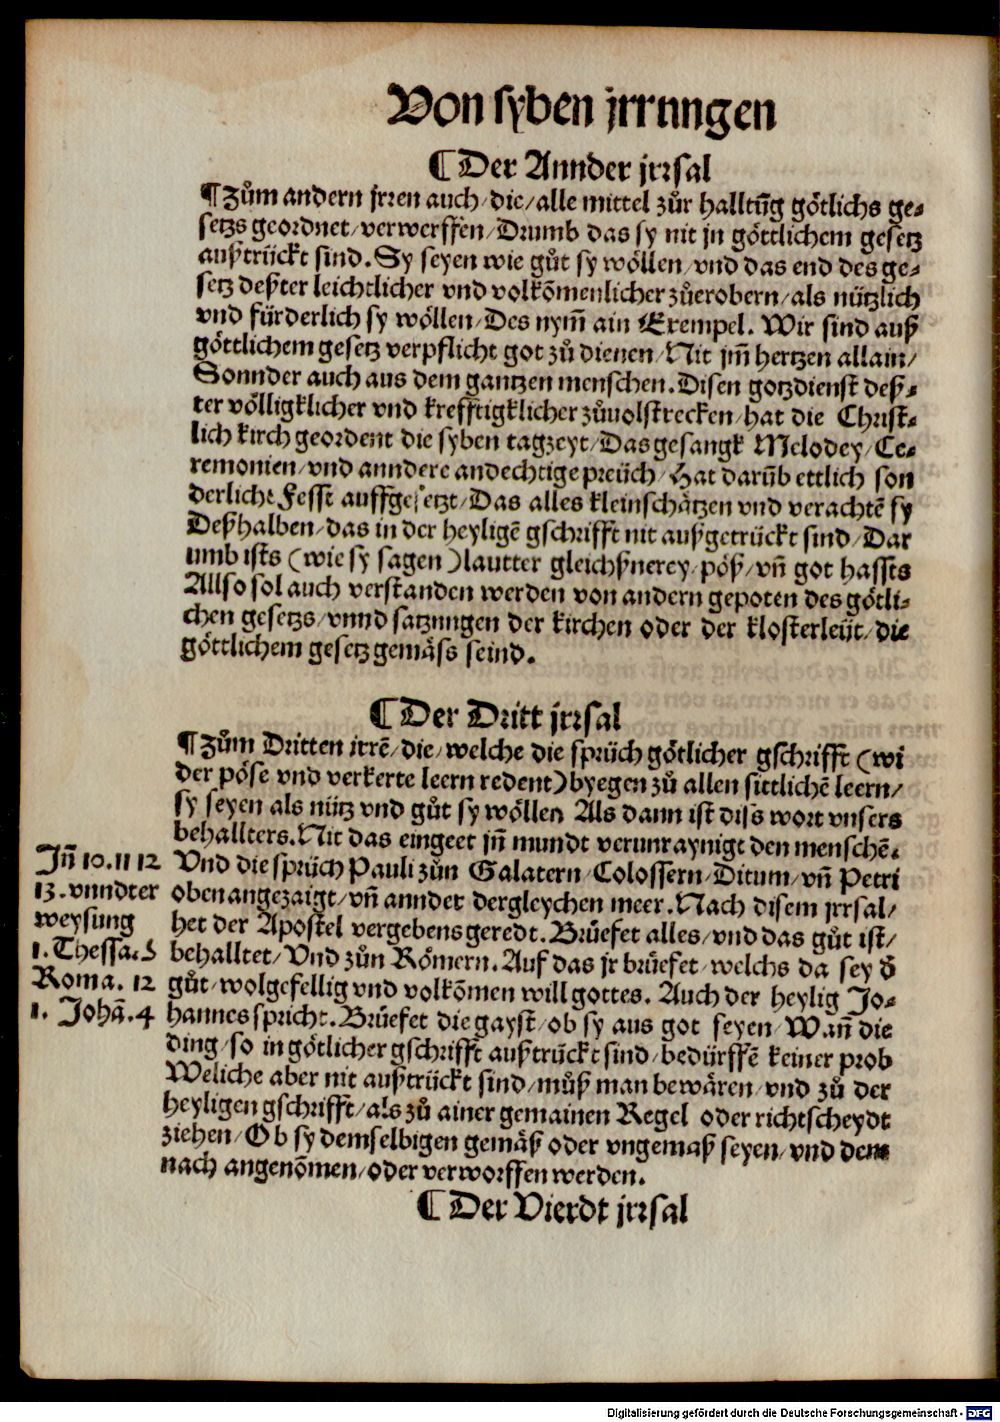 Von syben jrrnngen
¶ Der Annder jrrsal
¶ Zům andern jrren auch/die/alle mittel zůr halltūg götlichs ge⸗
setzs geordnet/verwerffen/Drumb das sy nit jn göttlichem gesetz
außtrückt sind. Sy seyen wie gůt sy wöllen/vnd das end des ge⸗
setz deßter leichtlicher vnd volkōmenlicher zůerobern/als nützlich
vnd fürderlich sy wöllen/Des nym̄ ain Exempel. Wir sind auß
göttlichem gesetz verpflicht got zů dienen/Nit jm̄ hertzen allain/
Sonnder auch aus dem gantzen menschen. Disen gotzdienst deß⸗
ter völligklicher vnd krefftigklicher zůuolstrecken/hat die Christ⸗
lich kirch geordent die syben tagzeyt/Das gesangk Melodey/Ce⸗
remonien/vnd anndere andechtige preüch/Hat darūb ettlich son
derlich: Fesst auffgesetzt/Das alles kleinschätzen vnd verachtē sy
Deßhalben/das in der heyligē gschrifft nit außgetrückt sind/Dar
umb ists (wie sy sagen) lautter gleichßnerey/pöß/vn̄ got hassts
Allso sol auch verstanden werden von andern gepoten des götli⸗
chen gesetzs/vnnd satzungen der kirchen oder der klosterleüt/die
göttlichem gesetz gemäss seind.
¶ Der Dritt jrrsal
¶ Zům Dritten irrē/die/welche die sprüch götlicher gschrifft (wi
der pöse vnd verkerte leern redent) byegen zů allen sittlichē leern/
sy seyen als nütz vnd gůt sy wöllen Als dann ist diss wort vnsers
behallters. Nit das eingeet jn̄ mundt verunraynigt den menschē.
Vnd die sprüch Pauli zůn Galatern/Colossern/Ditum/vn̄ Petri
oben angezaigt/vn̄ annder dergleychen meer. Nach disem jrrsal/
het der Apostel vergebens geredt. Brüefet alles/vnd das gůt ist/
behalltet/Vnd zůn Römern. Auf das jr brüefet/welchs da sey d̄
gůt/wolgefellig vnd volkōmen will gottes. Auch der heylig Jo⸗
hannes spricht. Brüefet die gayst/ob sy aus got seyen/Wan̄ die
ding/so in götlicher gschrifft außtrückt sind/bedürffē keiner prob
Weliche aber nit außtrückt sind/můß man bewären/vnd zů der
heyligen gschrifft/als zů ainer gemainen Regel oder richtscheydt
ziehen/Ob sy demselbigen gemäß oder vngemaß seyen/vnd dem
nach angenōmen/oder verworffen werden.
Jn̄ 10. 11 12
13. vnndter
weysung
1. Thessa. 5
Roma. 12
1. Johā. 4
¶ Der Vierdt jrrsal
Digitalisierung gefördert durch die Deutsche Forschungsgemeinschaft - DFG